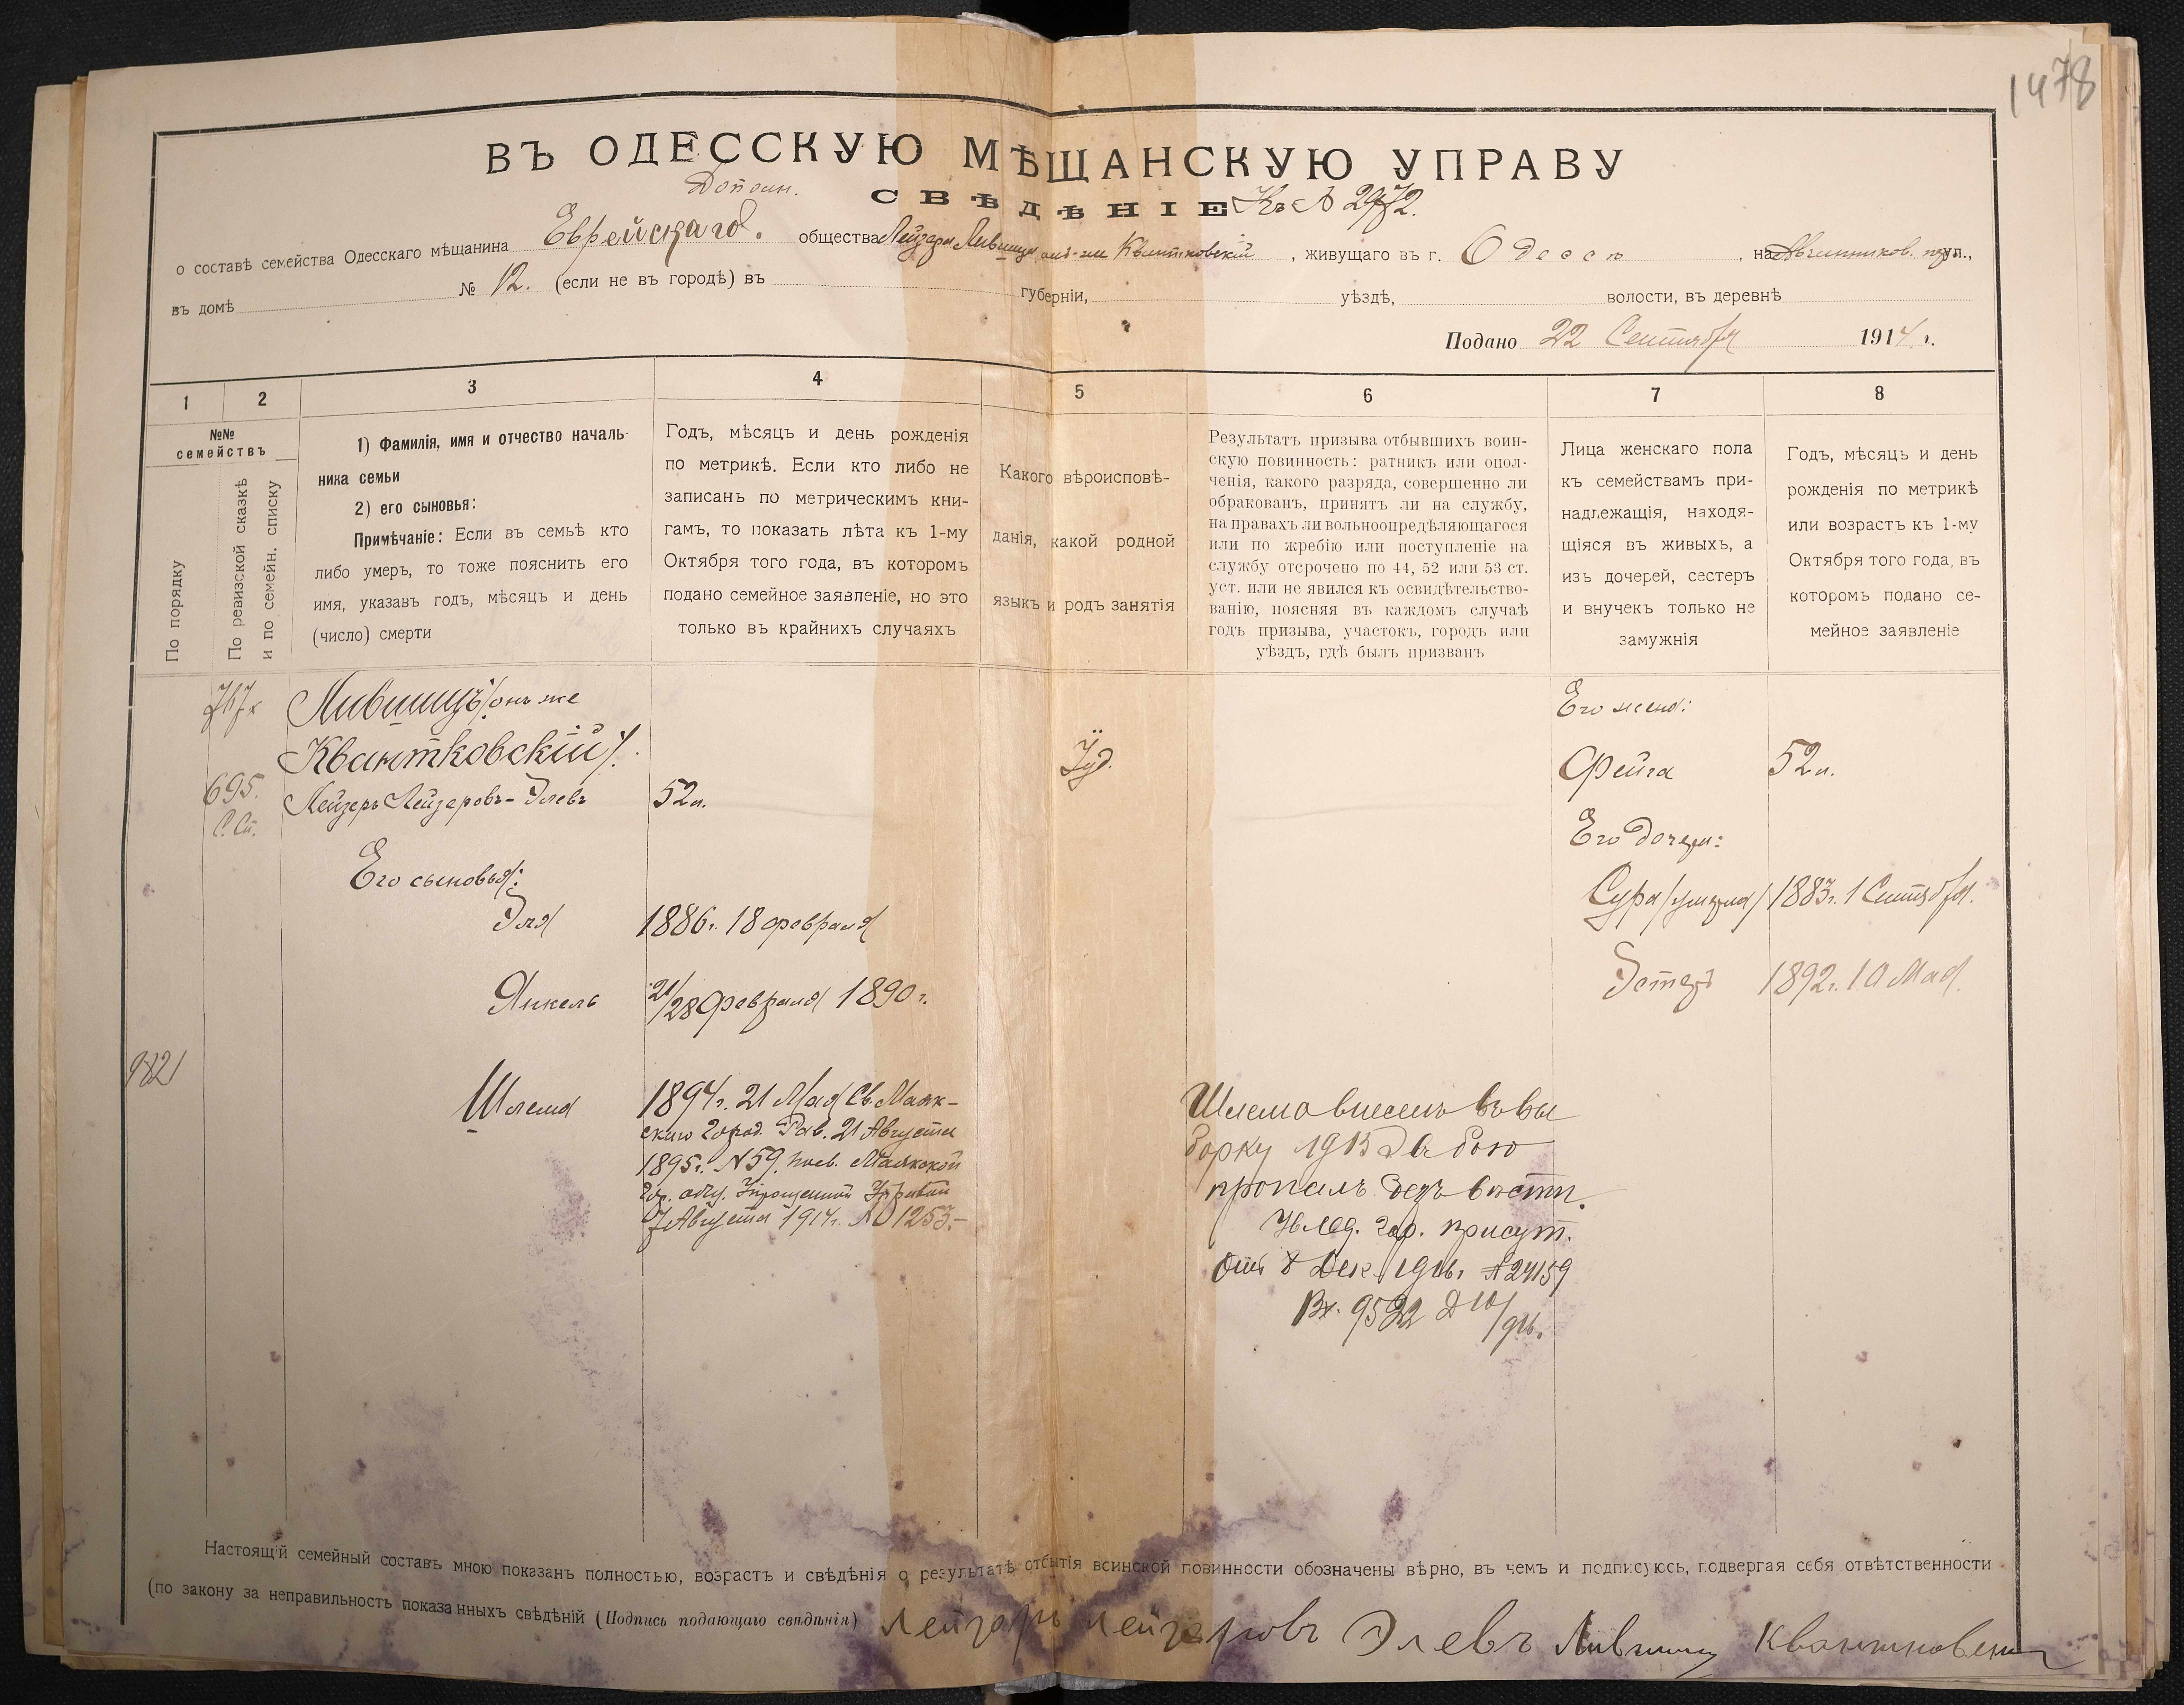 1478
ВЪ ОДЕССКУЮ МѢЩАНСКУЮ УПРАВУ
Дополн.
СВѢДѢНІЕ Къ № 2972.
о составѣ семейства Одесскаго мѣщанина Еврейскаго. общества Лейзера Лившица онъ-же Квантковскій, живущаго въ г. Одессѣ, на ул.,
въ домѣ № 12. (если не въ городѣ) въ губерніи, уѣздѣ, волости, въ деревнѣ
Подано 22 Сентября 1914 г.
1 2 3 4 5 6 7 8
№№ семействъ
По порядку
По ревизской сказкѣ
и по семейн. списку
1) Фамилія, имя и отчество началь-
ника семьи
2) его сыновья:
Примѣчаніе: Если въ семьѣ кто
либо умеръ, то тоже пояснить его
имя, указавъ годъ, мѣсяцъ и день
(число) смерти
Годъ, мѣсяцъ и день рожденія
по метрикѣ. Если кто либо не
записанъ по метрическимъ кни-
гамъ, то показать лѣта къ 1-му
Октября того года, въ которомъ
подано семейное заявленіе, но это
только въ крайнихъ случаяхъ
Какого вѣроисповѣ-
данія, какой родной
языкъ и родъ занятія
Результатъ призыва отбывшихъ воин-
скую повинность: ратникъ или опол-
ченія, какого разряда, совершенно ли
обракованъ, принятъ ли на службу,
на правахъ ли вольноопредѣляющагося
или по жребію или поступленіе на
службу отсрочено по 44, 52 или 53 ст.
уст. или не явился къ освидѣтельство-
ванію, поясняя въ каждомъ случаѣ
годъ призыва, участокъ, городъ или
уѣздъ, гдѣ былъ призванъ
Лица женскаго пола
къ семействамъ при-
надлежащія, находя-
щіяся въ живыхъ, а
изъ дочерей, сестеръ
и внучекъ только не
замужнія
Годъ, мѣсяцъ и день
рожденія по метрикѣ
или возрастъ къ 1-му
Октября того года, въ
которомъ подано се-
мейное заявленіе
Лившицъ /онъ же
Квантковскій/.
695.
С. Сп.
Лейзеръ Лейзеровъ-Элевъ 52 л.
Іуд.
Его жена:
Фейга 52 л.
Его сыновья:
Эля 1886 г. 18 февраля
Янкель 21/28 февраля 1890 г.
Его дочери:
Сура /умерла/ 1883 г. 1 Сентября.
Эстеръ 1892 г. 10 Мая.
Шлема 1894 г. 21 Мая Св. Маяк-
скаго Город. Рав. 21 Августа
1895 г. № 59, посв. Маякской
гор. общ. Упрощенной Управой
7 Августа 1914 г. № 1253.-
Шлема внесенъ въ вы
борку 1915 Въ бою
пропалъ безъ вѣсти.
Увѣд. гор. присут.
отъ 8 Дек. 1916 г. № 24159
Вх. 9522 Д 10/916.
Настоящій семейный составъ мною показанъ полностью, возрастъ и свѣдѣнія о результатѣ отбытія воинской повинности обозначены вѣрно, въ чемъ и подписуюсь, подвергая себя отвѣтственности
(по закону за неправильность показанныхъ свѣдѣній (Подпись подающаго свѣдѣнія) Лейзеръ Лейзеровъ Элевъ Лившиц Квантковский